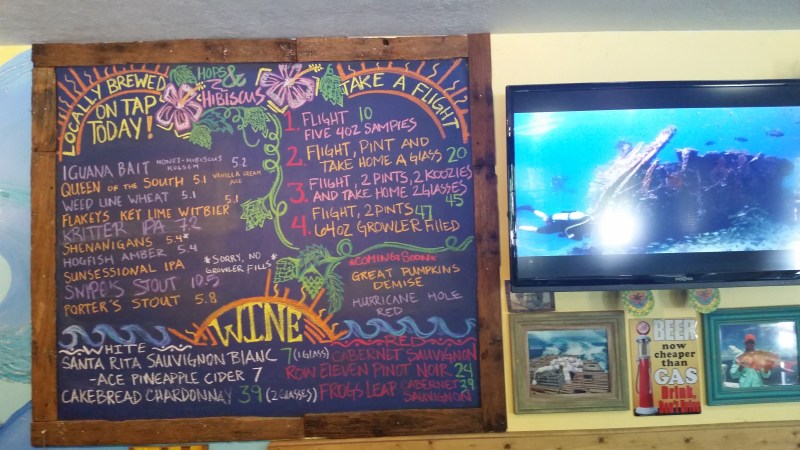 LOCALLY BREWED
ON TAP
TODAY!
HOPS &
HIBISCUS
TAKE A FLIGHT
IGUANA BAIT HONEY-HIBISCUS KOLSCH 5.2
QUEEN OF THE SOUTH 5.1 VANILLA CREAM ALE
WEED LINE WHEAT 5.1
FLAKEYS KEY LIME WITBIER 5.1
KRITTER IPA 7.2
SHENANIGANS 5.4*
HOGFISH AMBER 5.4
SUNSESSIONAL IPA
SNIPE'S STOUT 10.5
PORTER'S STOUT 5.8
*SORRY, NO
GROWLER FILLS*
1. FLIGHT 10
FIVE 4OZ SAMPLES
2. FLIGHT, PINT AND
TAKE HOME A GLASS 20
3. FLIGHT, 2 PINTS, 2 KOOZIES
AND TAKE HOME 2 GLASSES
45
4. FLIGHT, 2 PINTS 47
64OZ GROWLER FILLED
*COMING SOON*
GREAT PUMPKINS
DEMISE
HURRICANE HOLE
RED
WINE
WHITE
SANTA RITA SAUVIGNON BLANC 7 (1 GLASS)
-ACE PINEAPPLE CIDER 7
CAKEBREAD CHARDONNAY 39 (2 GLASSES)
RED
CABERNET SAUVIGNON
ROW ELEVEN PINOT NOIR 24
FROGS LEAP CABERNET 39
SAUVIGNON
BEER
now
cheaper
than
GAS
Drink,
Don't Drive